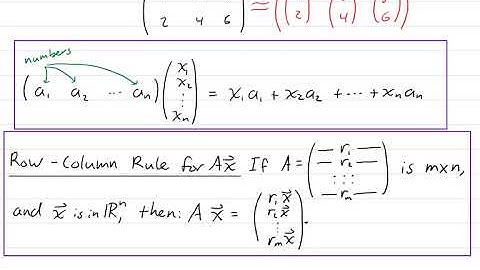 2 4 6 ≈ 2 4 6
numbers
(a₁ a₂ ⋯ aₙ) (x₁ x₂ ⋮ xₙ) = x₁a₁ + x₂a₂ + ⋯ + xₙaₙ
Row-Column Rule for Ax⃗ If A = (— r₁ — — r₂ — ⋯ — rₘ —) is m×n,
and x⃗ is in ℝⁿ, then: A x⃗ = (r₁x⃗ r₂x⃗ ⋮ rₘx⃗).